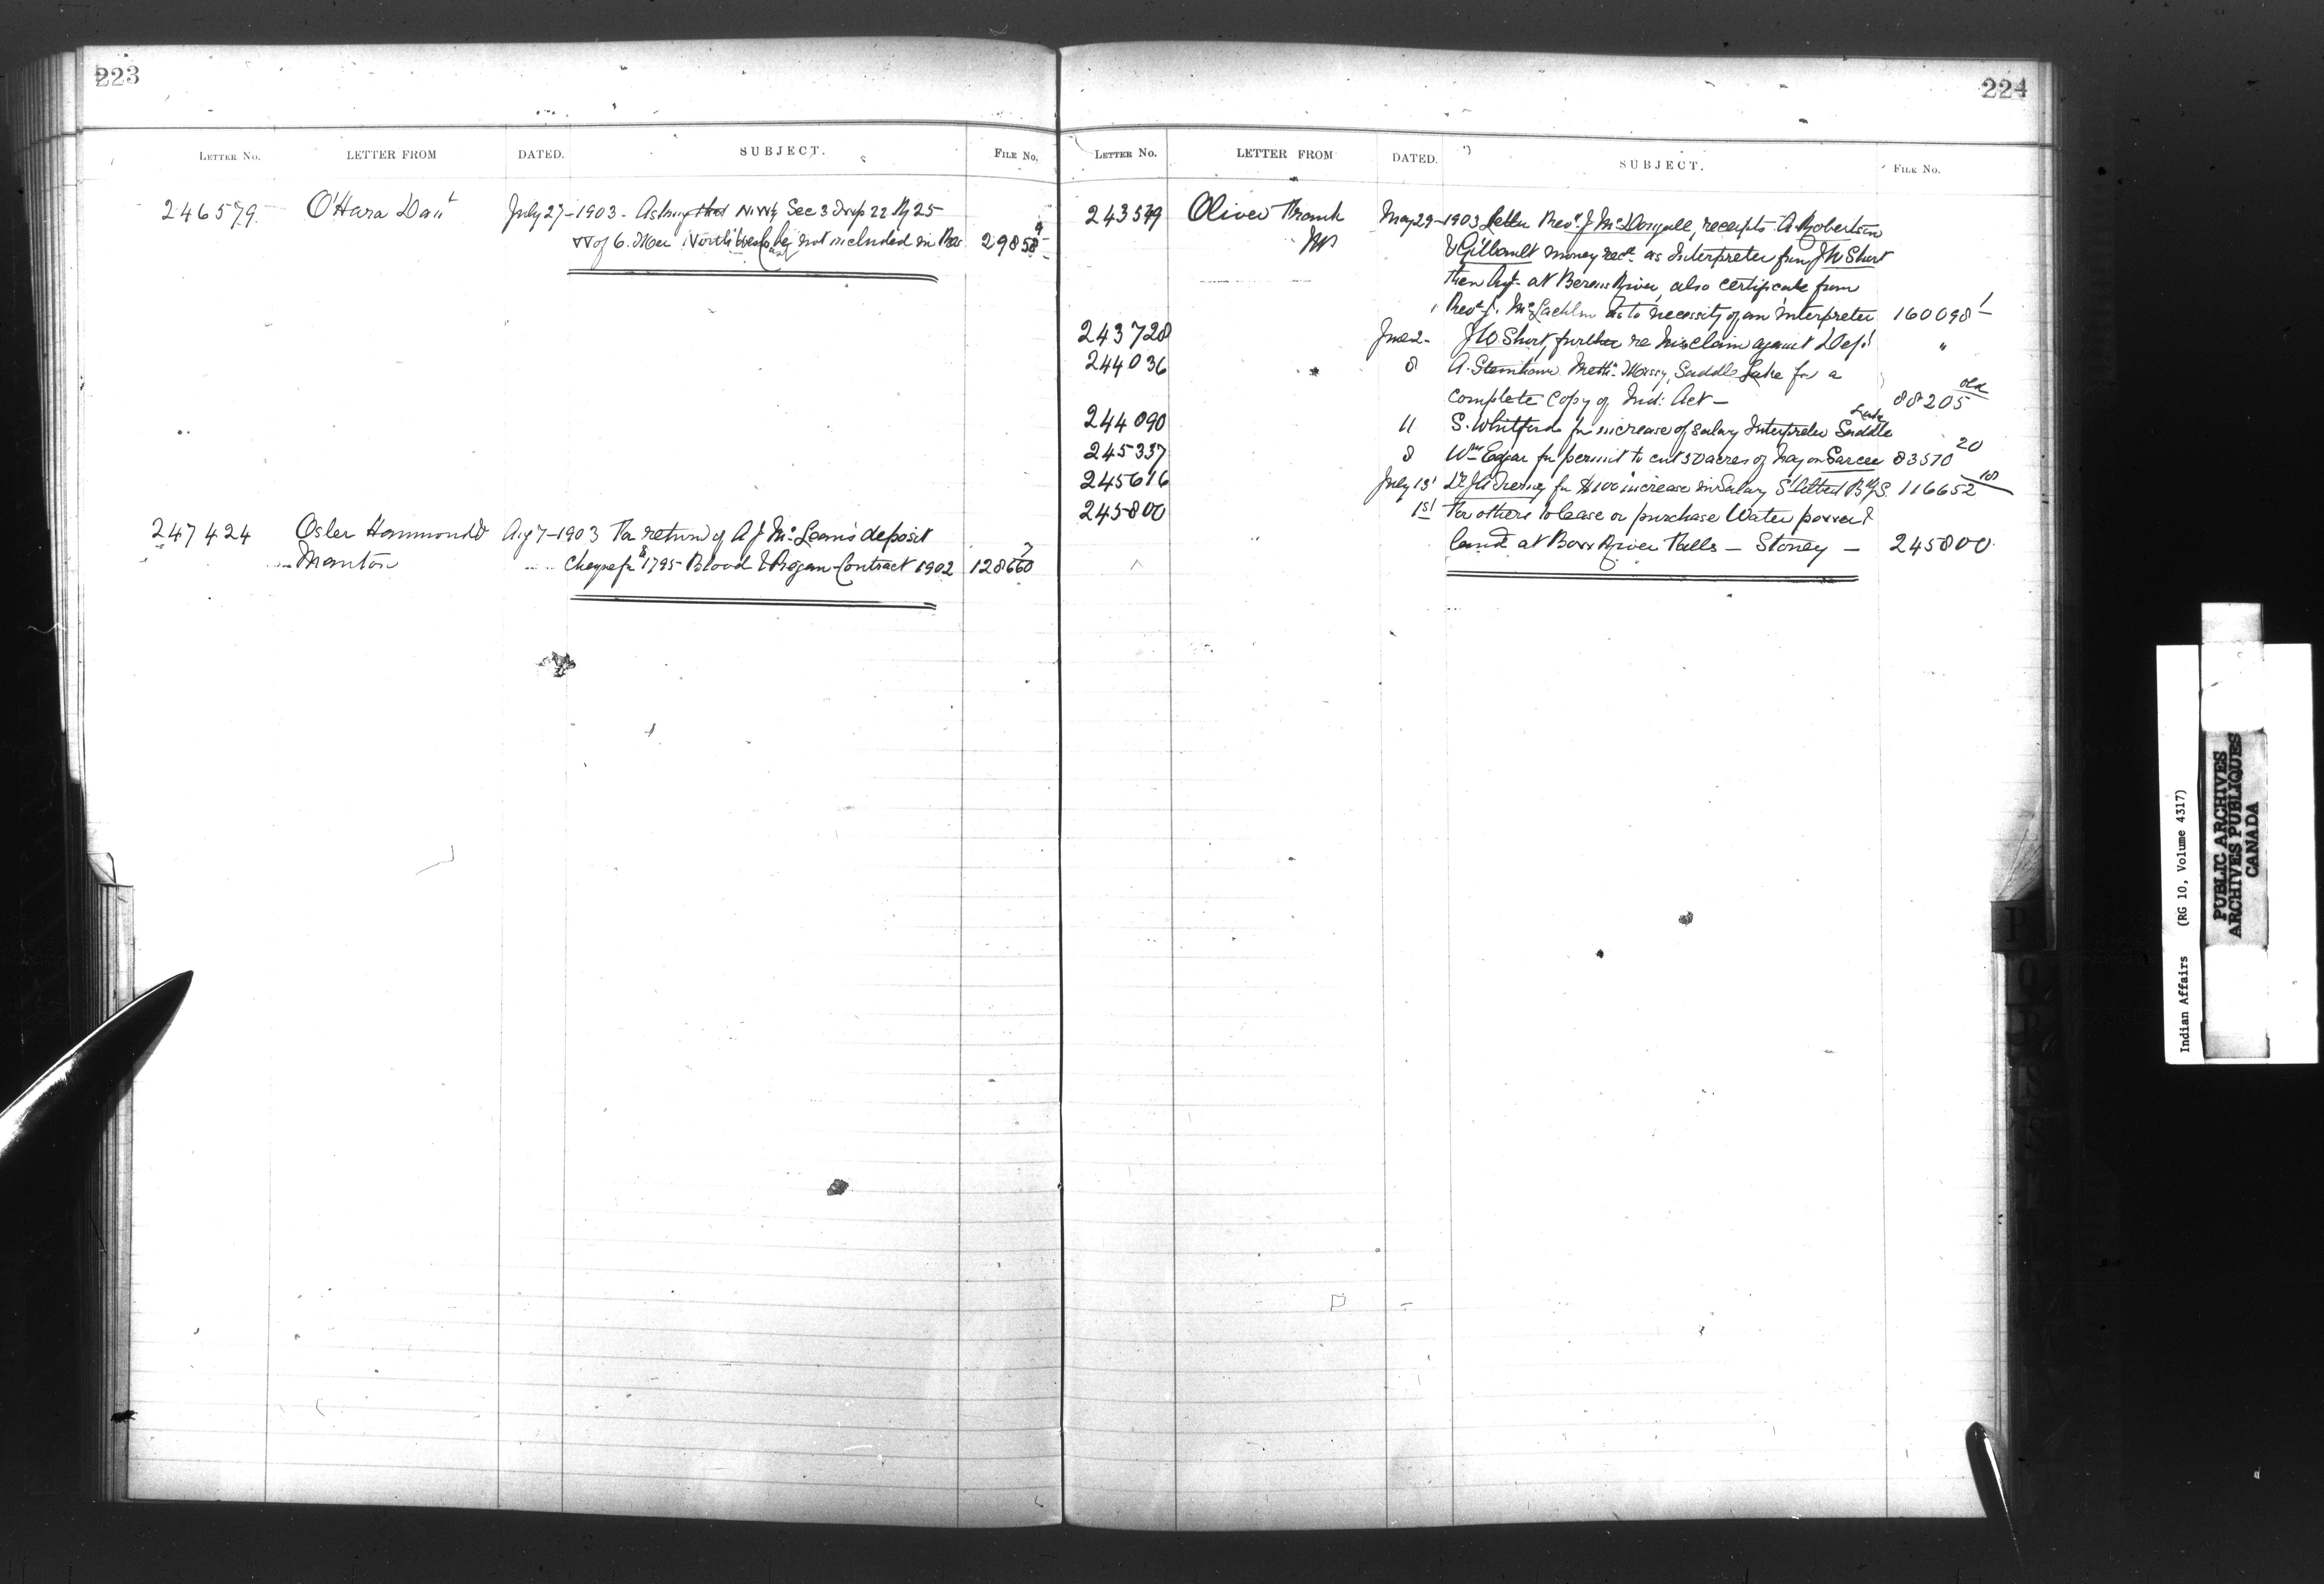 223
LETTER No. LETTER FROM DATED. SUBJECT. FILE No.
246579 O'Hara Danl July 27-1903- Asking that NW¼ Sec 3 Twp 22 Rg 25
W of 6. Mer North West be not included in Res 29858-9
247424 Osler Hammond & Aug 7-1903 For return of A J McLean's deposit
Nanton cheque for $1795- Blood & Piegan Contract 1902 128660-7
224
LETTER No. LETTER FROM DATED. SUBJECT. FILE No.
243549 Oliver Frank May 29-1903 Letter Revd J McDougall, receipts A. Robertson
MP & Gilbault money recd as Interpreter from J W Short
then Agt at Berens River, also certificate from
Revd J. McLachlin as to necessity of an Interpreter 160098-1
243728 June 2- J W Short, further re his claim against Dept "
244036 8 A. Steinhauer Meth. Missy, Saddle Lake for a
complete copy of Ind: Act - 88205 old
244090 11 S. Whitford for increase of salary Interpreter Saddle Lake
245337 8 Wm Edgar for permit to cut 50 acres of hay on Sarcee 83570 20
245616 July 13 for $100 increase in Salary St Albert 116652 10
245800 1st For others to lease or purchase Water power &
land at Bow River Falls - Stoney - 245800
P
Indian Affairs (RG 10, Volume 4317)
PUBLIC ARCHIVES
ARCHIVES PUBLIQUES
CANADA